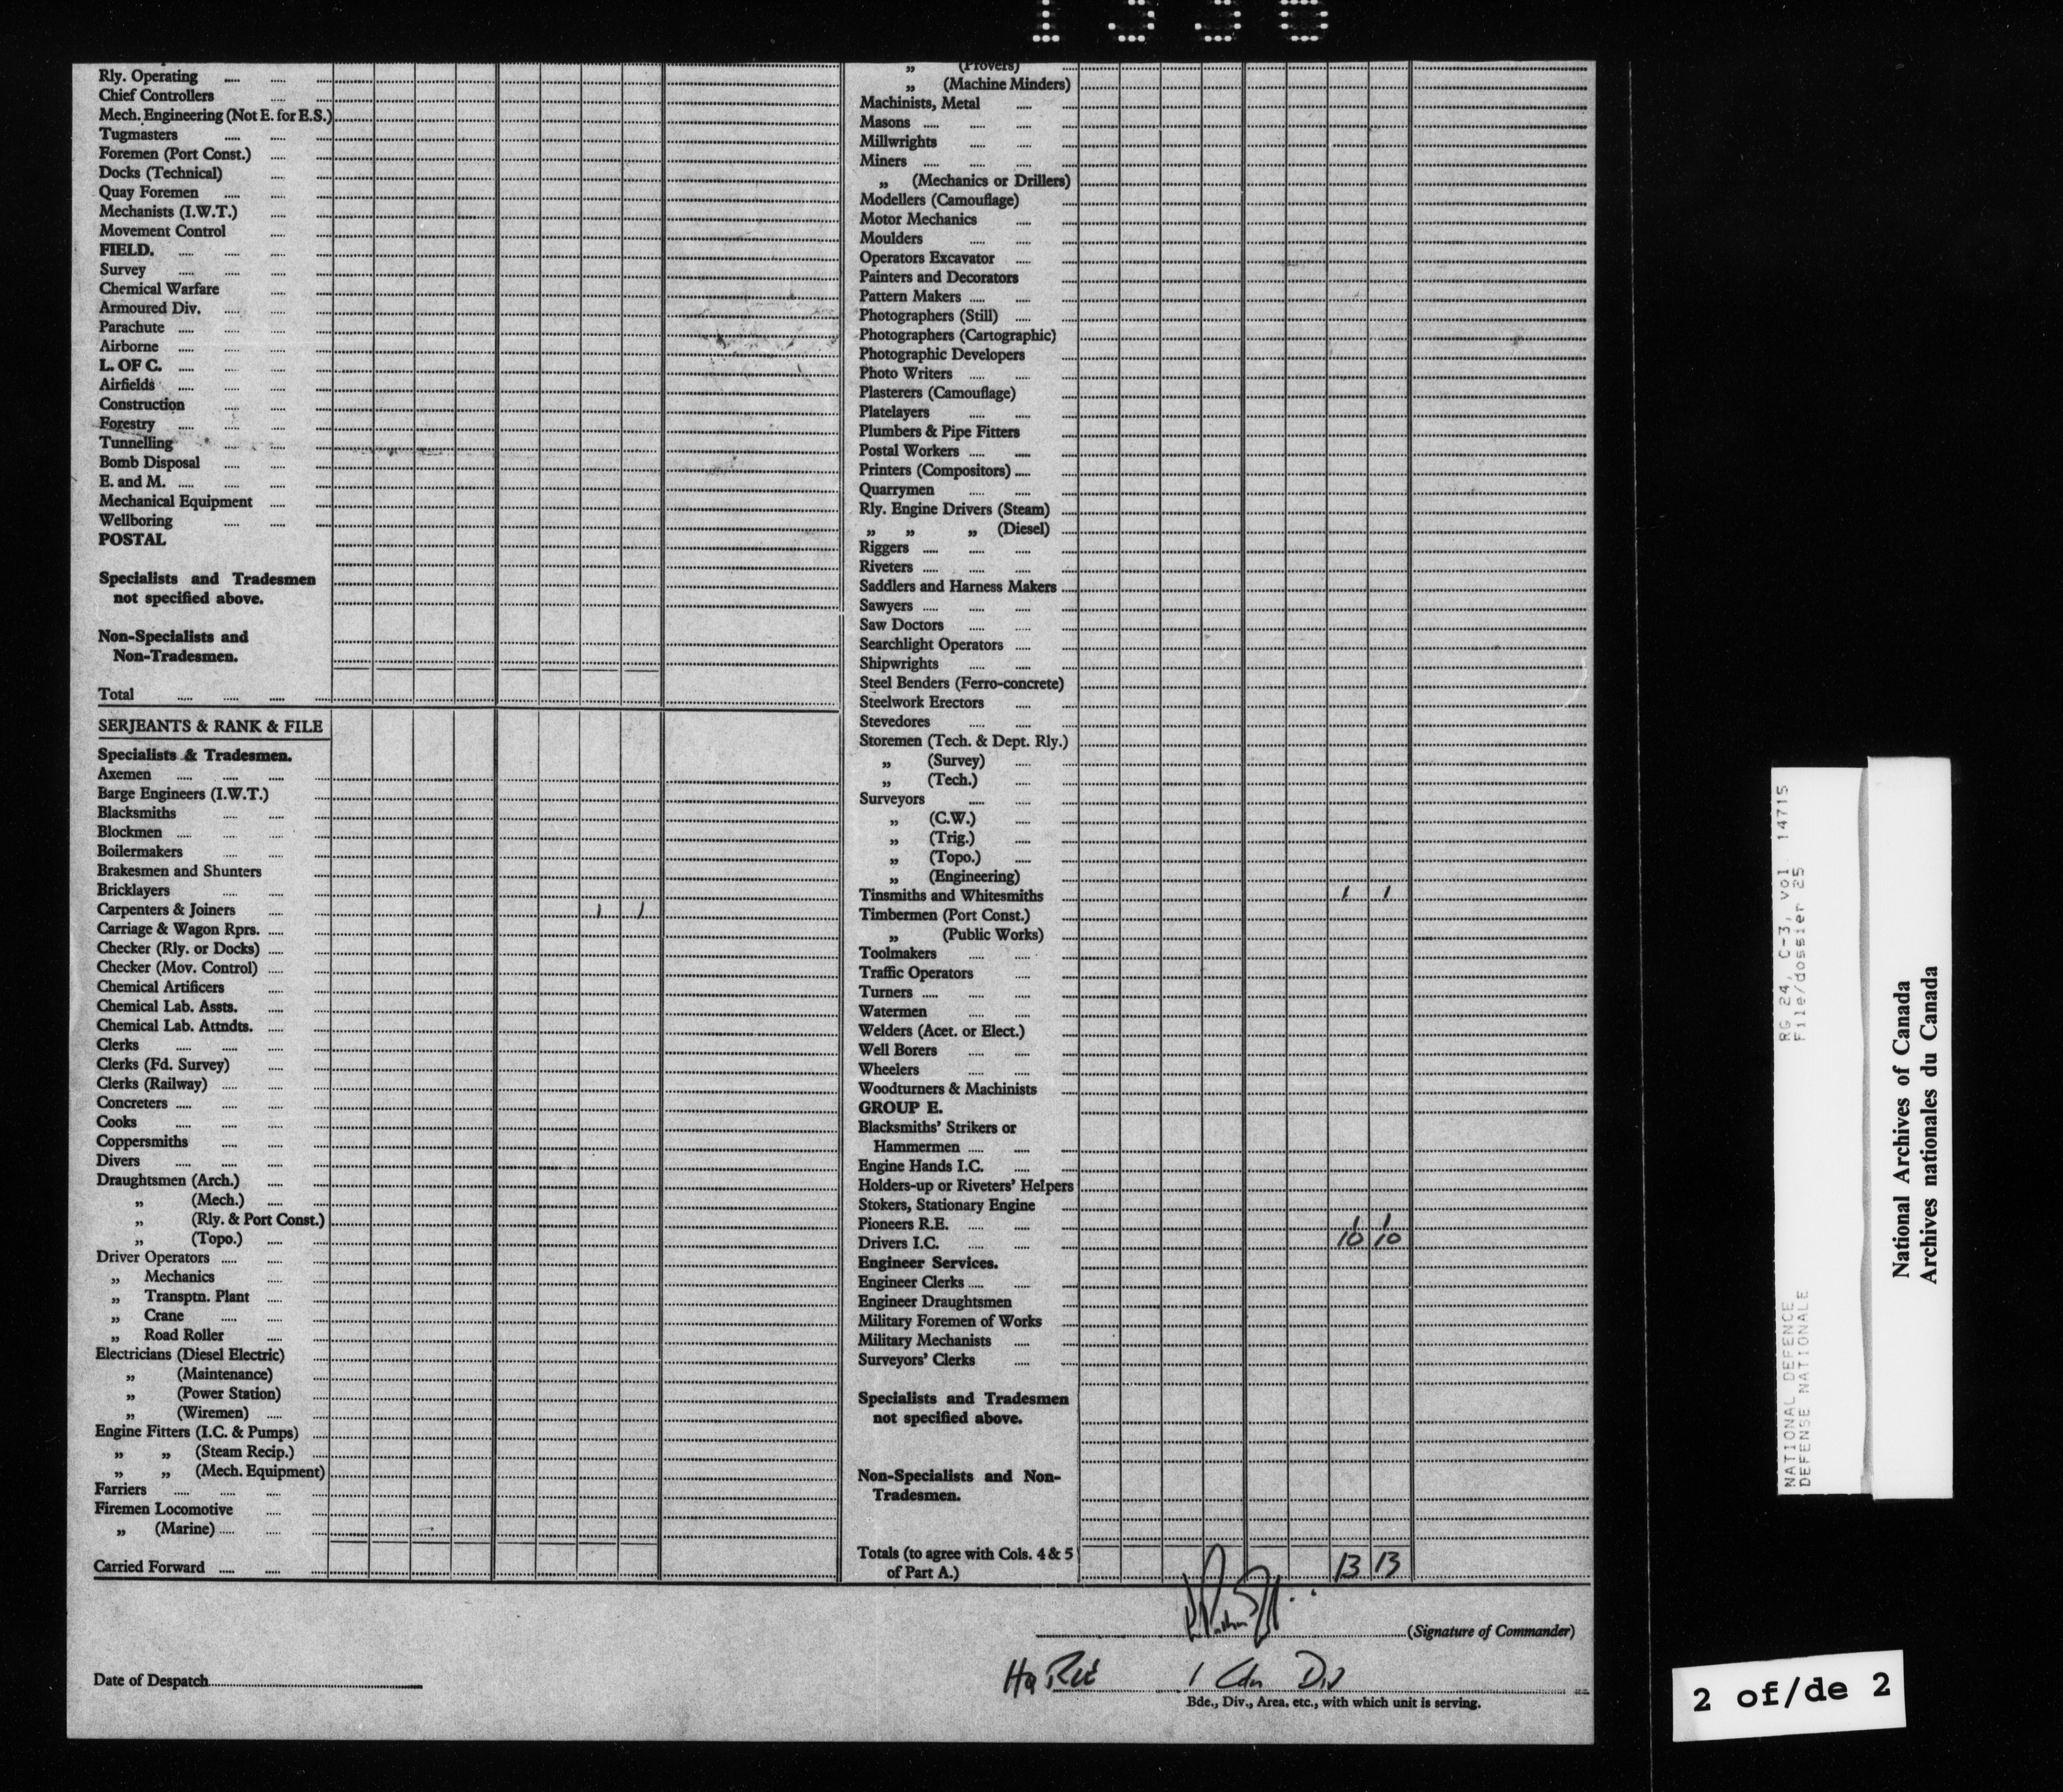 Rly. Operating .... .... ....
Chief Controllers .... ....
Mech. Engineering (Not E. for E.S.)
Tugmasters .... .... ....
Foremen (Port Const.) .... ....
Docks (Technical) .... ....
Quay Foremen .... .... ....
Mechanists (I.W.T.) .... ....
Movement Control .... ....
FIELD. .... .... .... ....
Survey .... .... .... ....
Chemical Warfare .... ....
Armoured Div. .... .... ....
Parachute .... .... .... ....
Airborne .... .... .... ....
L. OF C. .... .... .... ....
Airfields .... .... .... ....
Construction .... .... ....
Forestry .... .... .... ....
Tunnelling .... .... ....
Bomb Disposal .... .... ....
E. and M. .... .... .... ....
Mechanical Equipment .... ....
Wellboring .... .... ....
POSTAL
Specialists and Tradesmen
not specified above.
Non-Specialists and
Non-Tradesmen.
Total .... .... .... ....
SERJEANTS & RANK & FILE
Specialists & Tradesmen.
Axemen .... .... .... ....
Barge Engineers (I.W.T.) ....
Blacksmiths .... .... ....
Blockmen .... .... .... ....
Boilermakers .... .... ....
Brakesmen and Shunters ....
Bricklayers .... .... ....
Carpenters & Joiners .... .... 1 1
Carriage & Wagon Rprs. .... ....
Checker (Rly. or Docks) .... ....
Checker (Mov. Control) .... ....
Chemical Artificers .... ....
Chemical Lab. Assts. .... ....
Chemical Lab. Attndts. .... ....
Clerks .... .... .... ....
Clerks (Fd. Survey) .... ....
Clerks (Railway) .... .... ....
Concreters .... .... .... ....
Cooks .... .... .... ....
Coppersmiths .... .... ....
Divers .... .... .... ....
Draughtsmen (Arch.) .... ....
„ (Mech.) .... ....
„ (Rly. & Port Const.)
„ (Topo.) .... ....
Driver Operators .... .... ....
„ Mechanics .... ....
„ Transptn. Plant .... ....
„ Crane .... .... ....
„ Road Roller .... ....
Electricians (Diesel Electric) ....
„ (Maintenance) ....
„ (Power Station) ....
„ (Wiremen) .... ....
Engine Fitters (I.C. & Pumps) ....
„ „ (Steam Recip.) ....
„ „ (Mech. Equipment)
Farriers .... .... .... ....
Firemen Locomotive .... ....
„ (Marine) .... .... ....
Carried Forward .... .... ....
„ (Provers) ....
„ (Machine Minders)
Machinists, Metal .... ....
Masons .... .... .... ....
Millwrights .... .... ....
Miners .... .... .... ....
„ (Mechanics or Drillers)
Modellers (Camouflage) ....
Motor Mechanics .... ....
Moulders .... .... ....
Operators Excavator .... ....
Painters and Decorators ....
Pattern Makers .... .... ....
Photographers (Still) .... ....
Photographers (Cartographic)
Photographic Developers ....
Photo Writers .... .... ....
Plasterers (Camouflage) ....
Platelayers .... .... ....
Plumbers & Pipe Fitters ....
Postal Workers .... .... ....
Printers (Compositors) .... ....
Quarrymen .... .... ....
Rly. Engine Drivers (Steam) ....
„ „ „ (Diesel) ....
Riggers .... .... .... ....
Riveters .... .... .... ....
Saddlers and Harness Makers ....
Sawyers .... .... .... ....
Saw Doctors .... .... ....
Searchlight Operators .... ....
Shipwrights .... .... ....
Steel Benders (Ferro-concrete)
Steelwork Erectors .... ....
Stevedores .... .... ....
Storemen (Tech. & Dept. Rly.)
„ (Survey) .... ....
„ (Tech.) .... ....
Surveyors .... .... ....
„ (C.W.) .... ....
„ (Trig.) .... ....
„ (Topo.) .... ....
„ (Engineering) ....
Tinsmiths and Whitesmiths .... 1 1
Timbermen (Port Const.) ....
„ (Public Works) ....
Toolmakers .... .... ....
Traffic Operators .... ....
Turners .... .... .... ....
Watermen .... .... ....
Welders (Acet. or Elect.) ....
Well Borers .... .... ....
Wheelers .... .... ....
Woodturners & Machinists ....
GROUP E.
Blacksmiths' Strikers or
Hammermen .... .... ....
Engine Hands I.C. .... ....
Holders-up or Riveters' Helpers
Stokers, Stationary Engine ....
Pioneers R.E. .... .... .... 1 1
Drivers I.C. .... .... .... 10 10
Engineer Services.
Engineer Clerks .... .... ....
Engineer Draughtsmen ....
Military Foremen of Works ....
Military Mechanists .... ....
Surveyors' Clerks .... ....
Specialists and Tradesmen
not specified above.
Non-Specialists and Non-
Tradesmen.
Totals (to agree with Cols. 4 & 5
of Part A.) 13 13
(Signature of Commander)
Date of Despatch
Hq RCE 1 Cdn Div
Bde., Div., Area, etc., with which unit is serving.
RG 24, C-3, vol 14715
File/dossier 25
NATIONAL DEFENCE
DEFENSE NATIONALE
National Archives of Canada
Archives nationales du Canada
2 of/de 2